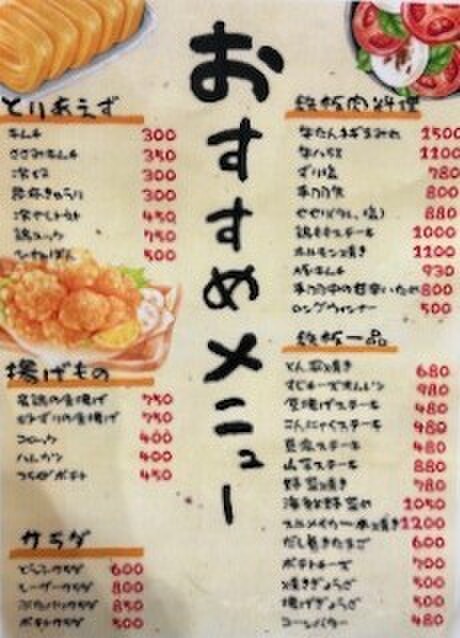 おすすめメニュー
とりあえず
キムチ 300
ささみキムチ 350
冷奴 300
300
冷やしトマト 450
鶏ユッケ 750
500
揚げもの
若鶏の唐揚げ 750
の唐揚げ 750
コロッケ 400
ハムカツ 400
ポテト 450
サラダ
とうふサラダ 600
シーザーサラダ 800
サラダ 850
ポテトサラダ 500
鉄板肉料理
牛たんネギまみれ 1500
牛ハラミ 1100
ずり塩 780
800
せせり(タレ、塩) 880
鶏ももステーキ 1000
ホルモン焼き 1100
豚キムチ 930
の甘辛いため 800
ロングウインナー 500
鉄板一品
とん平焼き 680
すじチーズオムレツ 980
厚揚げステーキ 480
こんにゃくステーキ 480
豆腐ステーキ 480
山芋ステーキ 880
野菜焼き 780
海鮮野菜炒め 1050
スルメイカ一本焼き 1200
だし巻きたまご 600
ポテトチーズ 700
焼きぎょうざ 500
揚げぎょうざ 500
コーンバター 480